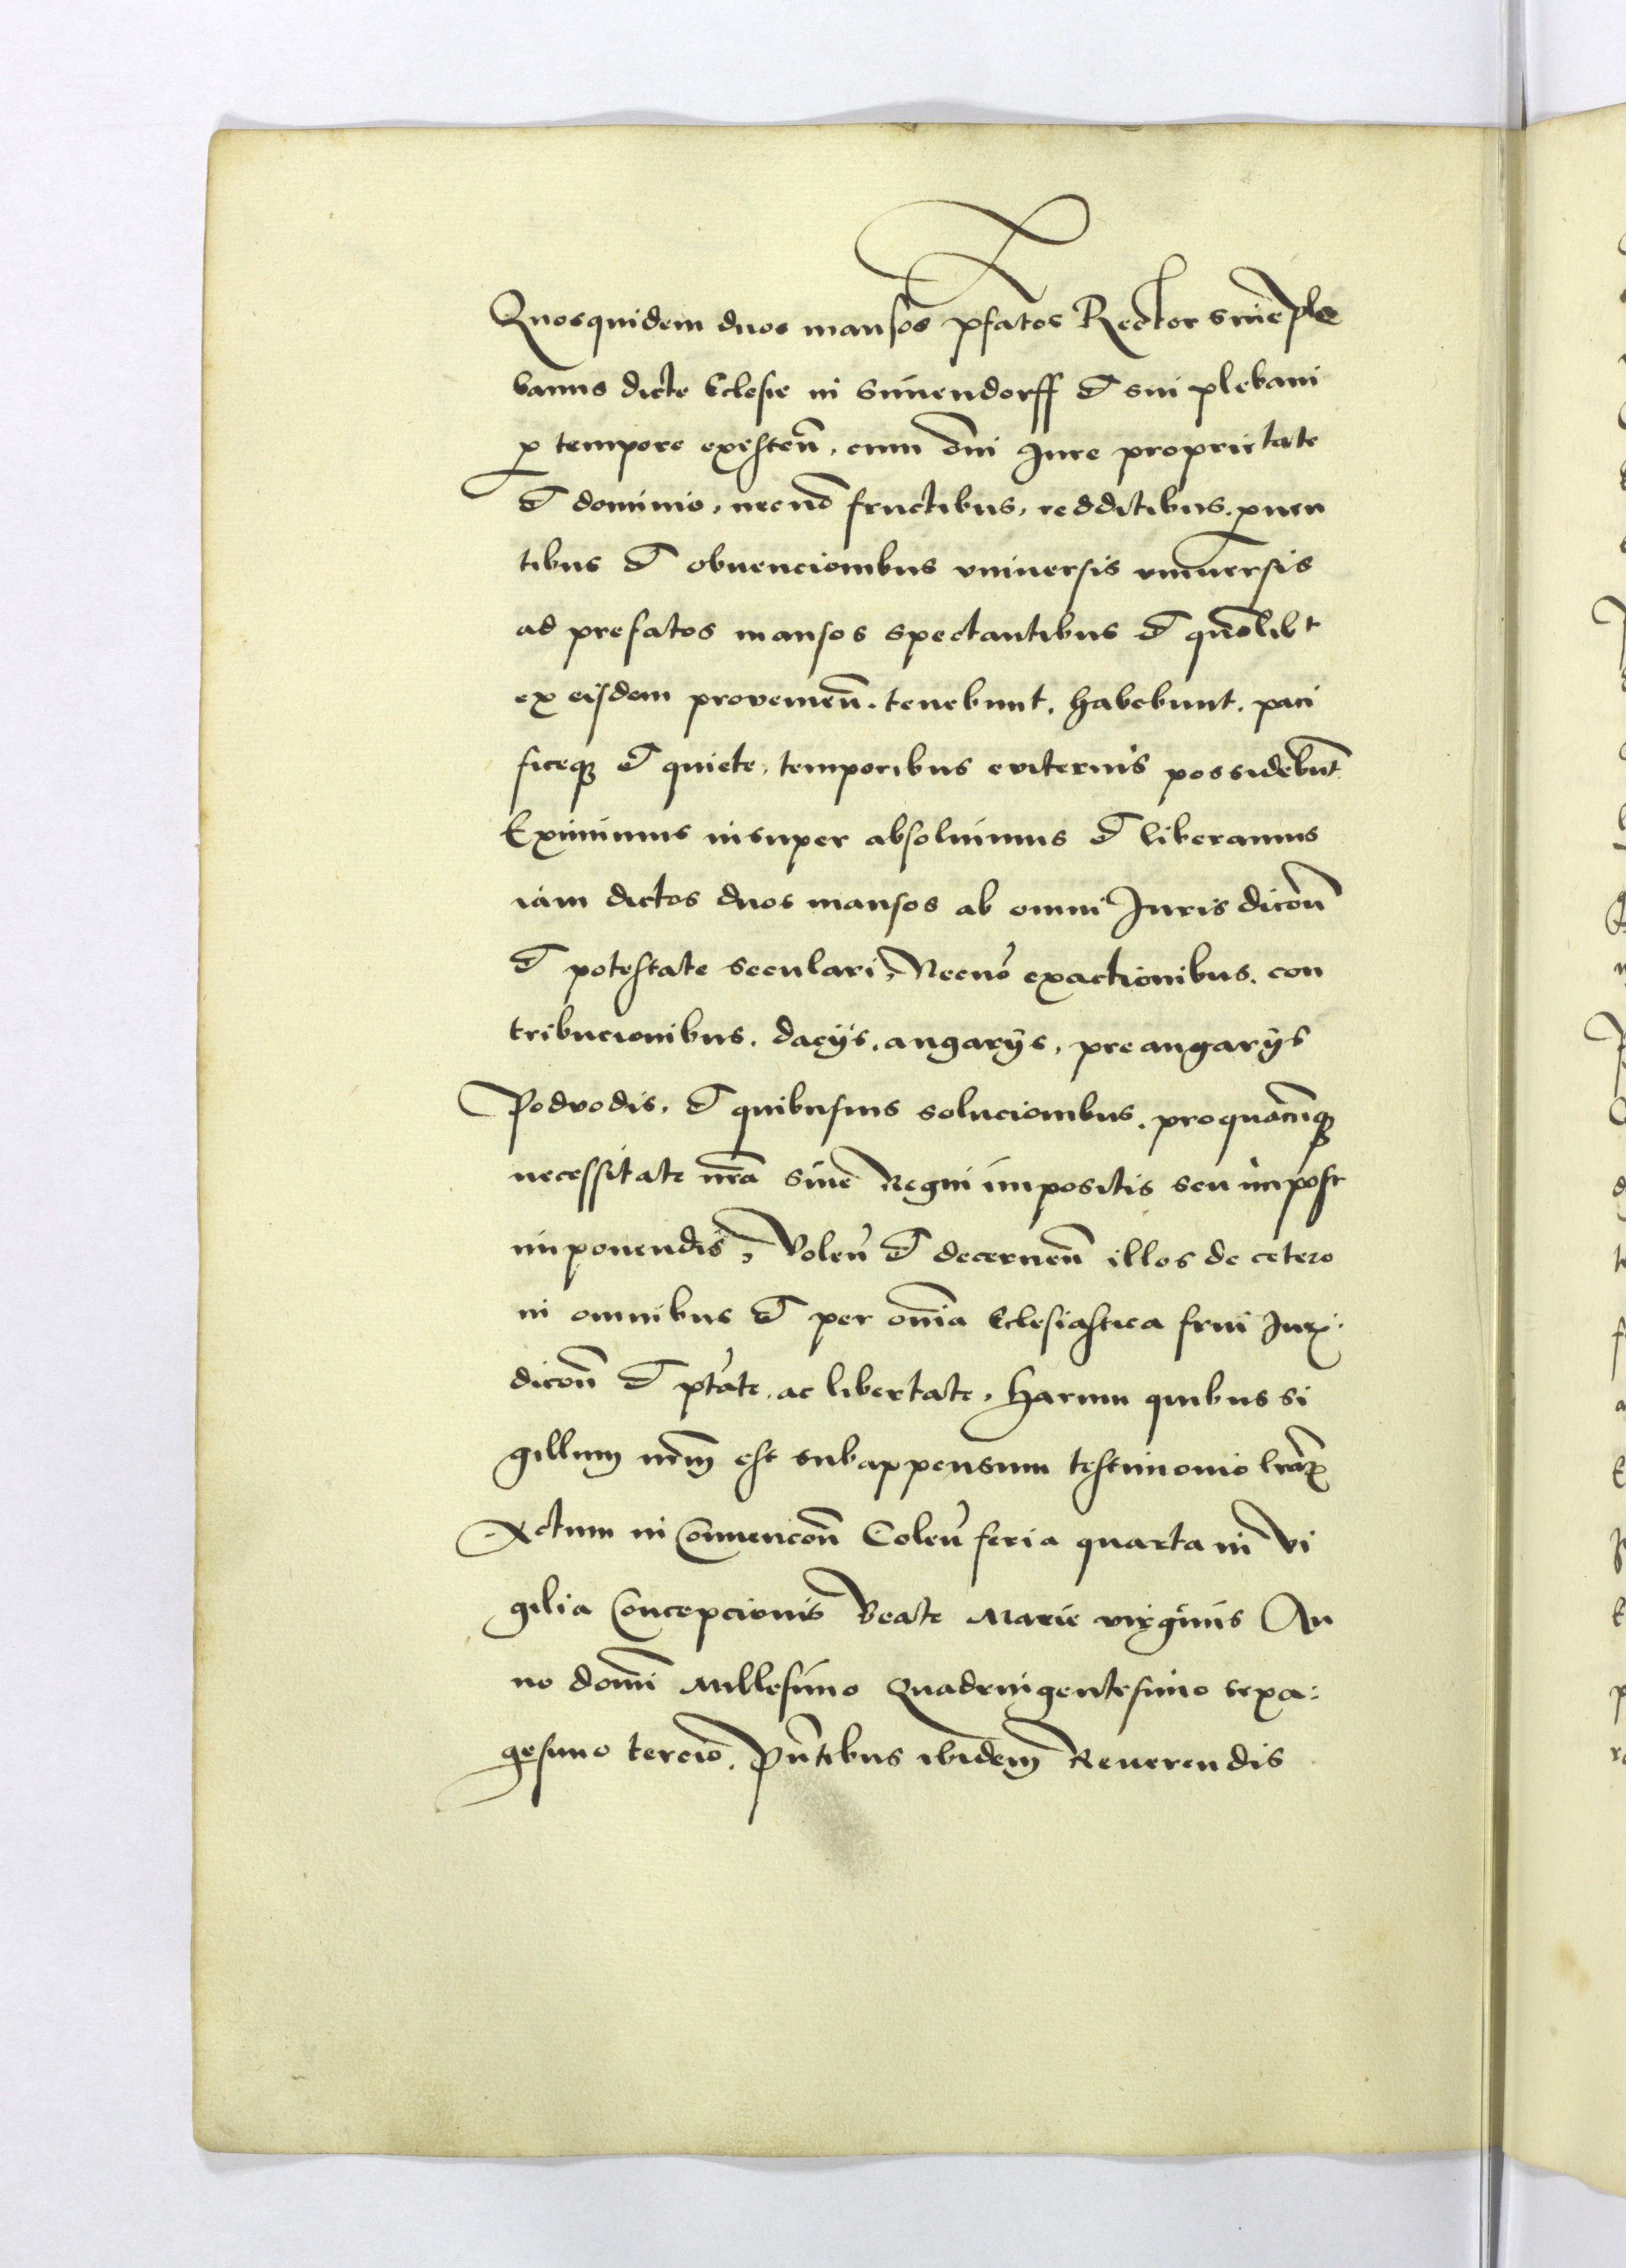 Quosquidem duos mansos pfatos Rector siue ple
banus dicte Eclesie in Siuendorff et sui plebani
p tempore existen̄, cum om̄i Iure proprietate
et dominio, necnō fructibus, redditibus, puen
tibus et obuencionibus vniuersis vniuersis
ad prefatos mansos spectantibus et quōlibt
ex eisdem provenien̄. tenebunt, habebunt, paci
ficeqꝫ et quiete, temporibus eviternis possidebūt
Eximimus insuper absoluimus et liberamus
iam dictos duos mansos ab omni Iuris dicōn̄
et potestate seculari, Necnō exactionibus, con
tribucionibus, dacijs, angarijs, preangarijs
Podvodis, et quibusuis solucionibus, pro quacūqꝫ
necessitate nr̄a siue Regni impositis seu impost
imponendis, Volen̄ et decernen̄ illos de cetero
in omnibus et per om̄ia Eclesiastica frui Iurꝫ
dicōn̄ et ptāte, ac libertate, Harum quibus si
gillum nr̄m est subappensum testimonio lrarꝫ
Actum in Conuencōn̄ Colen̄ feria quarta in Vi
gilia Concepcionis Beate Marie virginis An
no domī Millesimo Quadringentesimo sexa:
gesimo tercio, Pn̄tibus ibidem Reuerendis